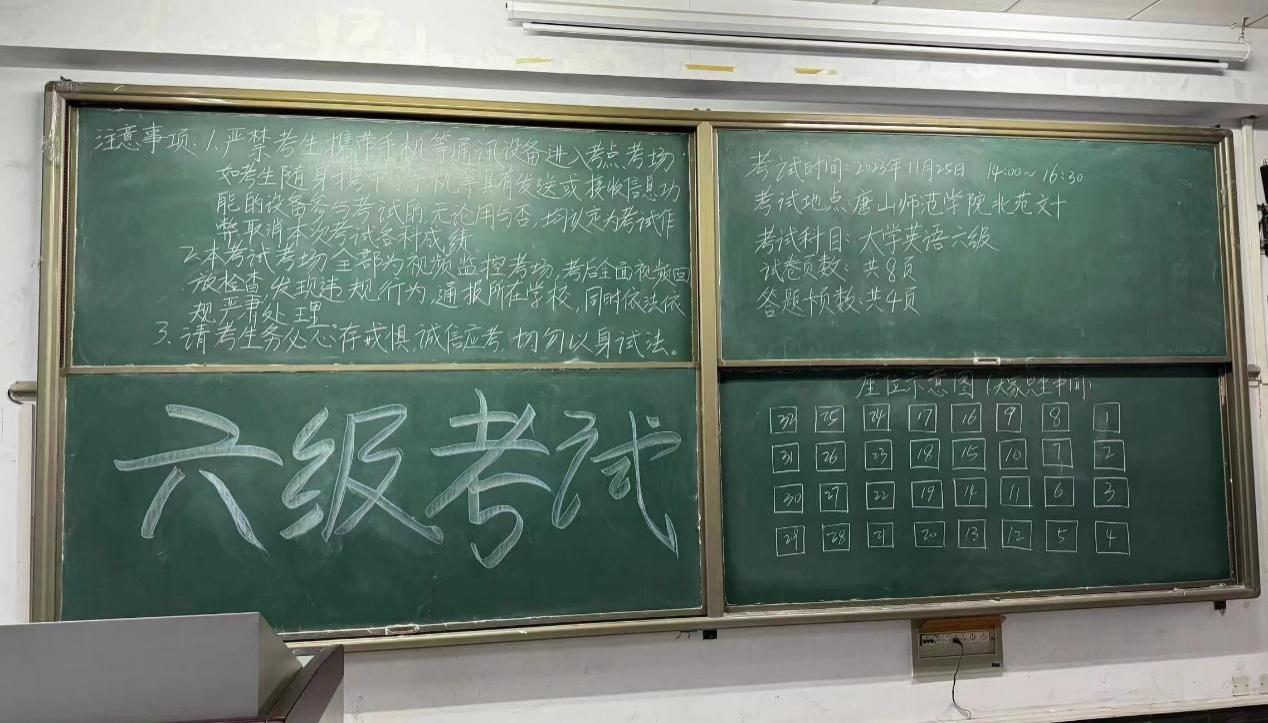 注意事项:1.严禁考生携带手机等通讯设备进入考点考场,
如考生随身携带了手机等具有发送或接收信息功
能的设备参与考试的,无论用与否,均认定为考试作
弊取消本次考试各科成绩
2.本考试考场全部为视频监控考场,考后全面视频回
放检查,发现违规行为,通报所在学校,同时依法依
规严肃处理。
3.请考生务必心存戒惧,诚信应考,切勿以身试法。
六级考试
考试时间:2023年11月25日 14:00~16:30
考试地点:唐山师范学院北范文十
考试科目:大学英语六级
试卷页数:共8页
答题卡页数:共4页
座位示意图(大家只坐中间)
32 25 24 17 16 9 8 1
31 26 23 18 15 10 7 2
30 27 22 19 14 11 6 3
29 28 21 20 13 12 5 4